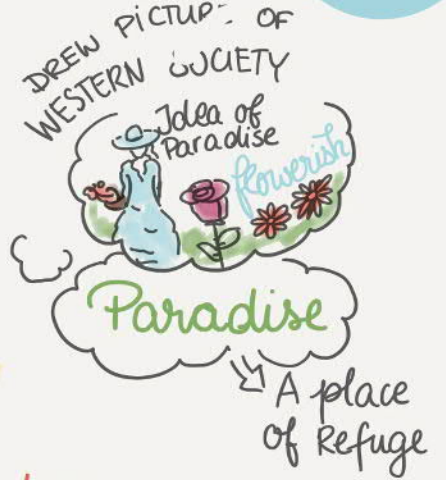 DREW PICTURE OF
WESTERN SOCIETY
Idea of
Paradise
flowerish
Paradise
A place
of Refuge